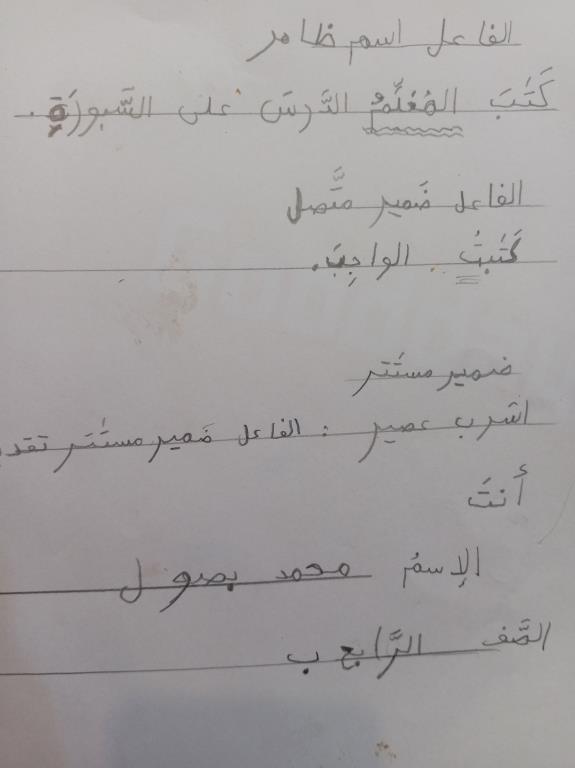 الفاعل اسم ظاهر
كَتَبَ المُعَلِّمُ الدَّرسَ على السَّبورَةِ.
الفاعل ضَمير متَّصل
كَتَبتُ الواجِبَ.
ضمير مستَتر
اشرب عصير : الفاعل ضَمير مستَتر تقدير
أَنتَ
الإسمُ محمد بصول
الصَّف الرَّابع ب